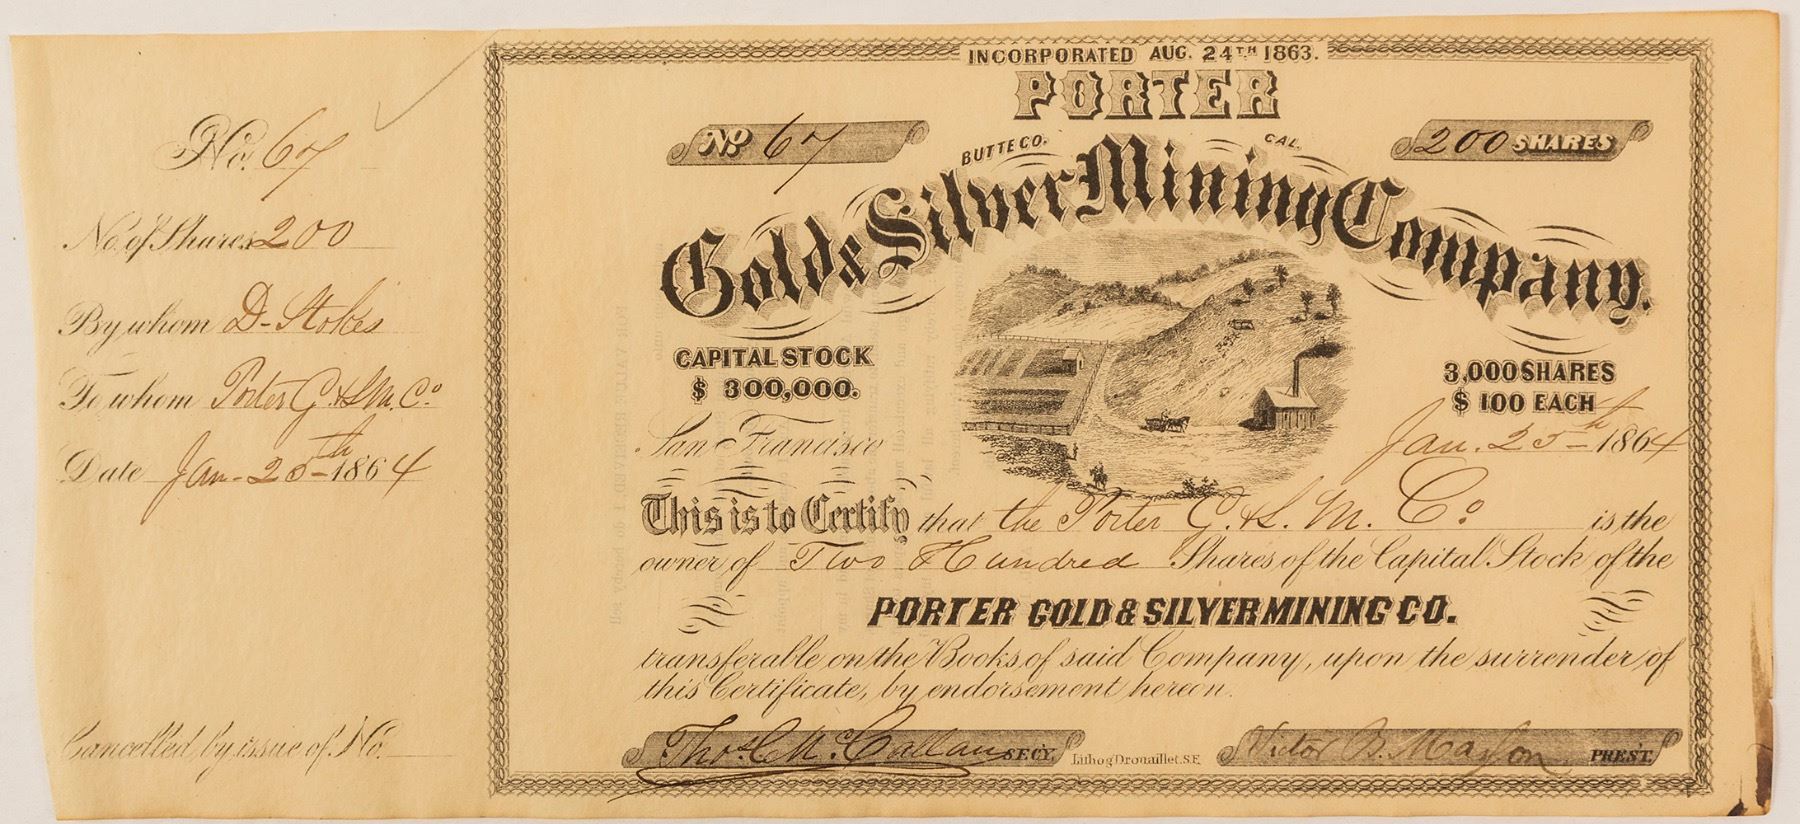 No. 67
No. of Shares 200
By whom D- Stokes
To whom Porter G. & S. M. Co
Date Jan. 25th 1864
Cancelled by issue of No.
INCORPORATED AUG. 24TH 1863.
PORTER
No 67
BUTTE CO. CAL.
200 SHARES
Gold & Silver Mining Company.
CAPITAL STOCK
$ 300,000.
3,000 SHARES
$ 100 EACH
San Francisco Jan. 25th 1864
This is to Certify that the Porter G. & S. M. Co is the
owner of Two Hundred Shares of the Capital Stock of the
PORTER GOLD & SILVER MINING CO.
transferable on the Books of said Company, upon the surrender of
this Certificate, by endorsement hereon.
Thos. C. McCallan SECY.
Lithog Drouaillet. S.F.
Victor B. PREST.